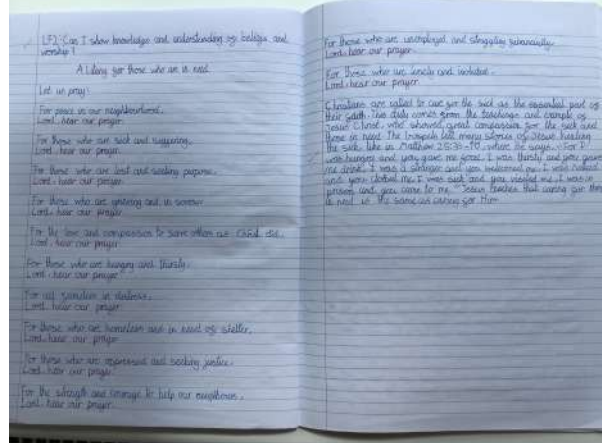 LF2: Can I show knowledge and understanding of beliefs and
worship?
A Litany for those who are in need
Let us pray:
For peace in our neighbourhood,
Lord, hear our prayer
For those who are sick and suffering,
Lord, hear our prayer
For those who are lost and seeking purpose,
Lord, hear our prayer
For those who are grieving and in sorrow
Lord, hear our prayer
For the love and compassion to serve others as Christ did.
Lord, hear our prayer
For those who are hungry and thirsty.
Lord, hear our prayer
For all families in distress,
Lord, hear our prayer
For those who are homeless and in need of shelter,
Lord, hear our prayer
For those who are oppressed and seeking justice.
Lord, hear our prayer
For the strength and courage to help our neighbours,
Lord, hear our prayer
For those who are unemployed and struggling financially.
Lord, hear our prayer
For those who are lonely and isolated.
Lord, hear our prayer
Christians are called to care for the sick as the essential part of
their faith. This duty comes from the teachings and example of
Jesus Christ, who showed great compassion for the sick and
those in need. The Gospels tell many stories of Jesus healing
the sick, like in Matthew 25:35-40, where he says, "For I
was hungry and you gave me food, I was thirsty and you gave
me drink, I was a stranger and you welcomed me, I was naked
and you clothed me, I was sick and you visited me, I was in
prison and you came to me." Jesus teaches that caring for
in need is the same as caring for Him